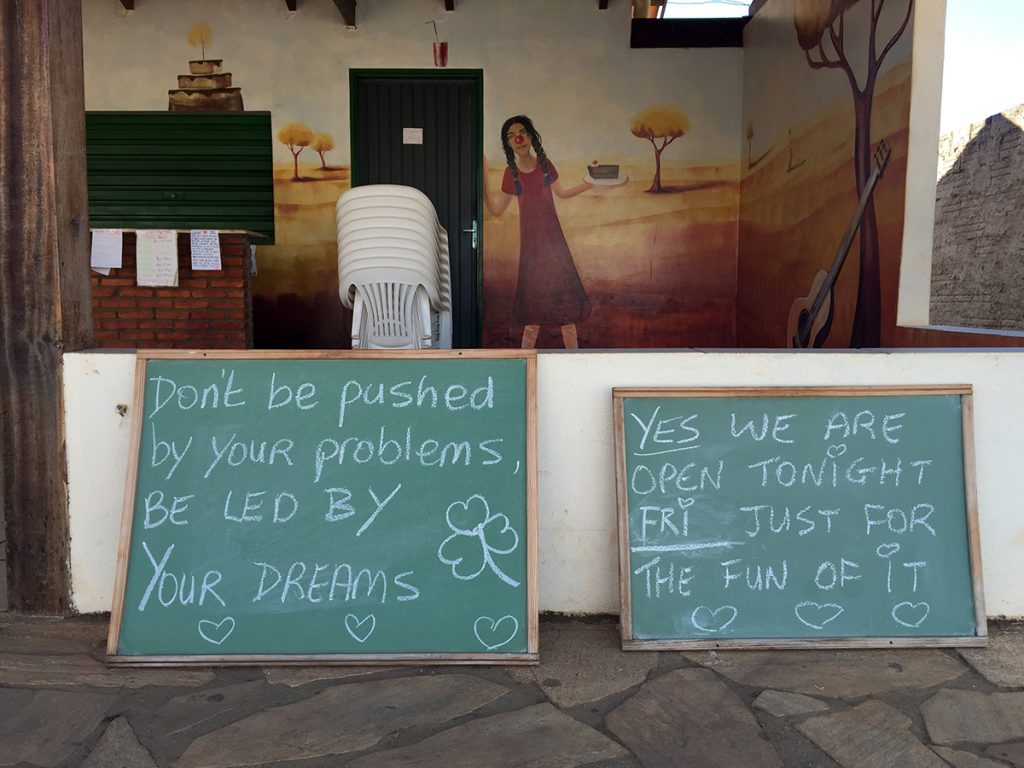 Don't be pushed
by your problems,
BE LED BY
YOUR DREAMS
YES WE ARE
OPEN TONIGHT
FRI JUST FOR
THE FUN OF iT